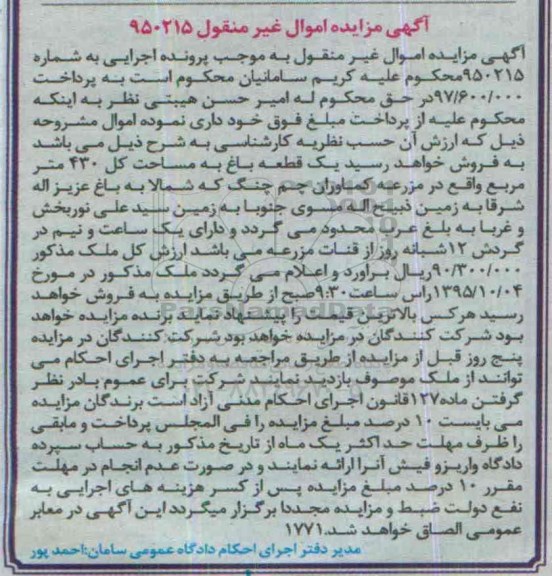 آگهی مزایده اموال غیر منقول ۹۵۰۲۱۵
آگهی مزایده اموال غیر منقول به موجب پرونده اجرایی به شماره
۹۵۰۲۱۵محکوم علیه کریم سامانیان محکوم است به پرداخت
۹۷/۶۰۰/۰۰۰در حق محکوم له امیر حسن هیبتی نظر به اینکه
محکوم علیه از پرداخت مبلغ فوق خود داری نموده اموال مشروحه
ذیل که ارزش آن حسب نظریه کارشناسی به شرح ذیل می باشد
به فروش خواهد رسید یک قطعه باغ به مساحت کل ۴۳۰ متر
مربع واقع در مزرعه کماوران چم چنگ که شمالا به باغ عزیز اله
شرقا به زمین ذبیح اله موسوی جنوبا به زمین سید علی نوربخش
و غربا به باغ عرب محدود می گردد و دارای یک ساعت و نیم در
گردش ۱۲شبانه روز از قنات مزرعه می باشد ارزش کل ملک مذکور
۹۰/۳۰۰/۰۰۰ریال براورد و اعلام می گردد ملک مذکور در مورخ
۱۳۹۵/۱۰/۰۴راس ساعت۹:۳۰صبح از طریق مزایده به فروش خواهد
رسید هرکس بالاترین قیمت را پیشنهاد نماید برنده مزایده خواهد
بود شرکت کنندگان در مزایده خواهد بود شرکت کنندگان در مزایده
پنج روز قبل از مزایده از طریق مراجعه به دفتر اجرای احکام می
توانند از ملک موصوف بازدید نمایند شرکت برای عموم بادر نظر
گرفتن ماده۱۲۷قانون اجرای احکام مدنی آزاد است برندگان مزایده
می بایست ۱۰ درصد مبلغ مزایده را فی المجلس پرداخت و مابقی
را ظرف مهلت حد اکثر یک ماه از تاریخ مذکور به حساب سپرده
دادگاه واریزو فیش آنرا ارائه نمایند و در صورت عدم انجام در مهلت
مقرر ۱۰ درصد مبلغ مزایده پس از کسر هزینه های اجرایی به
نفع دولت ضبط و مزایده مجددا برگزار میگردد این آگهی در معابر
عمومی الصاق خواهد شد.۱۷۷۱
مدیر دفتر اجرای احکام دادگاه عمومی سامان:احمد پور